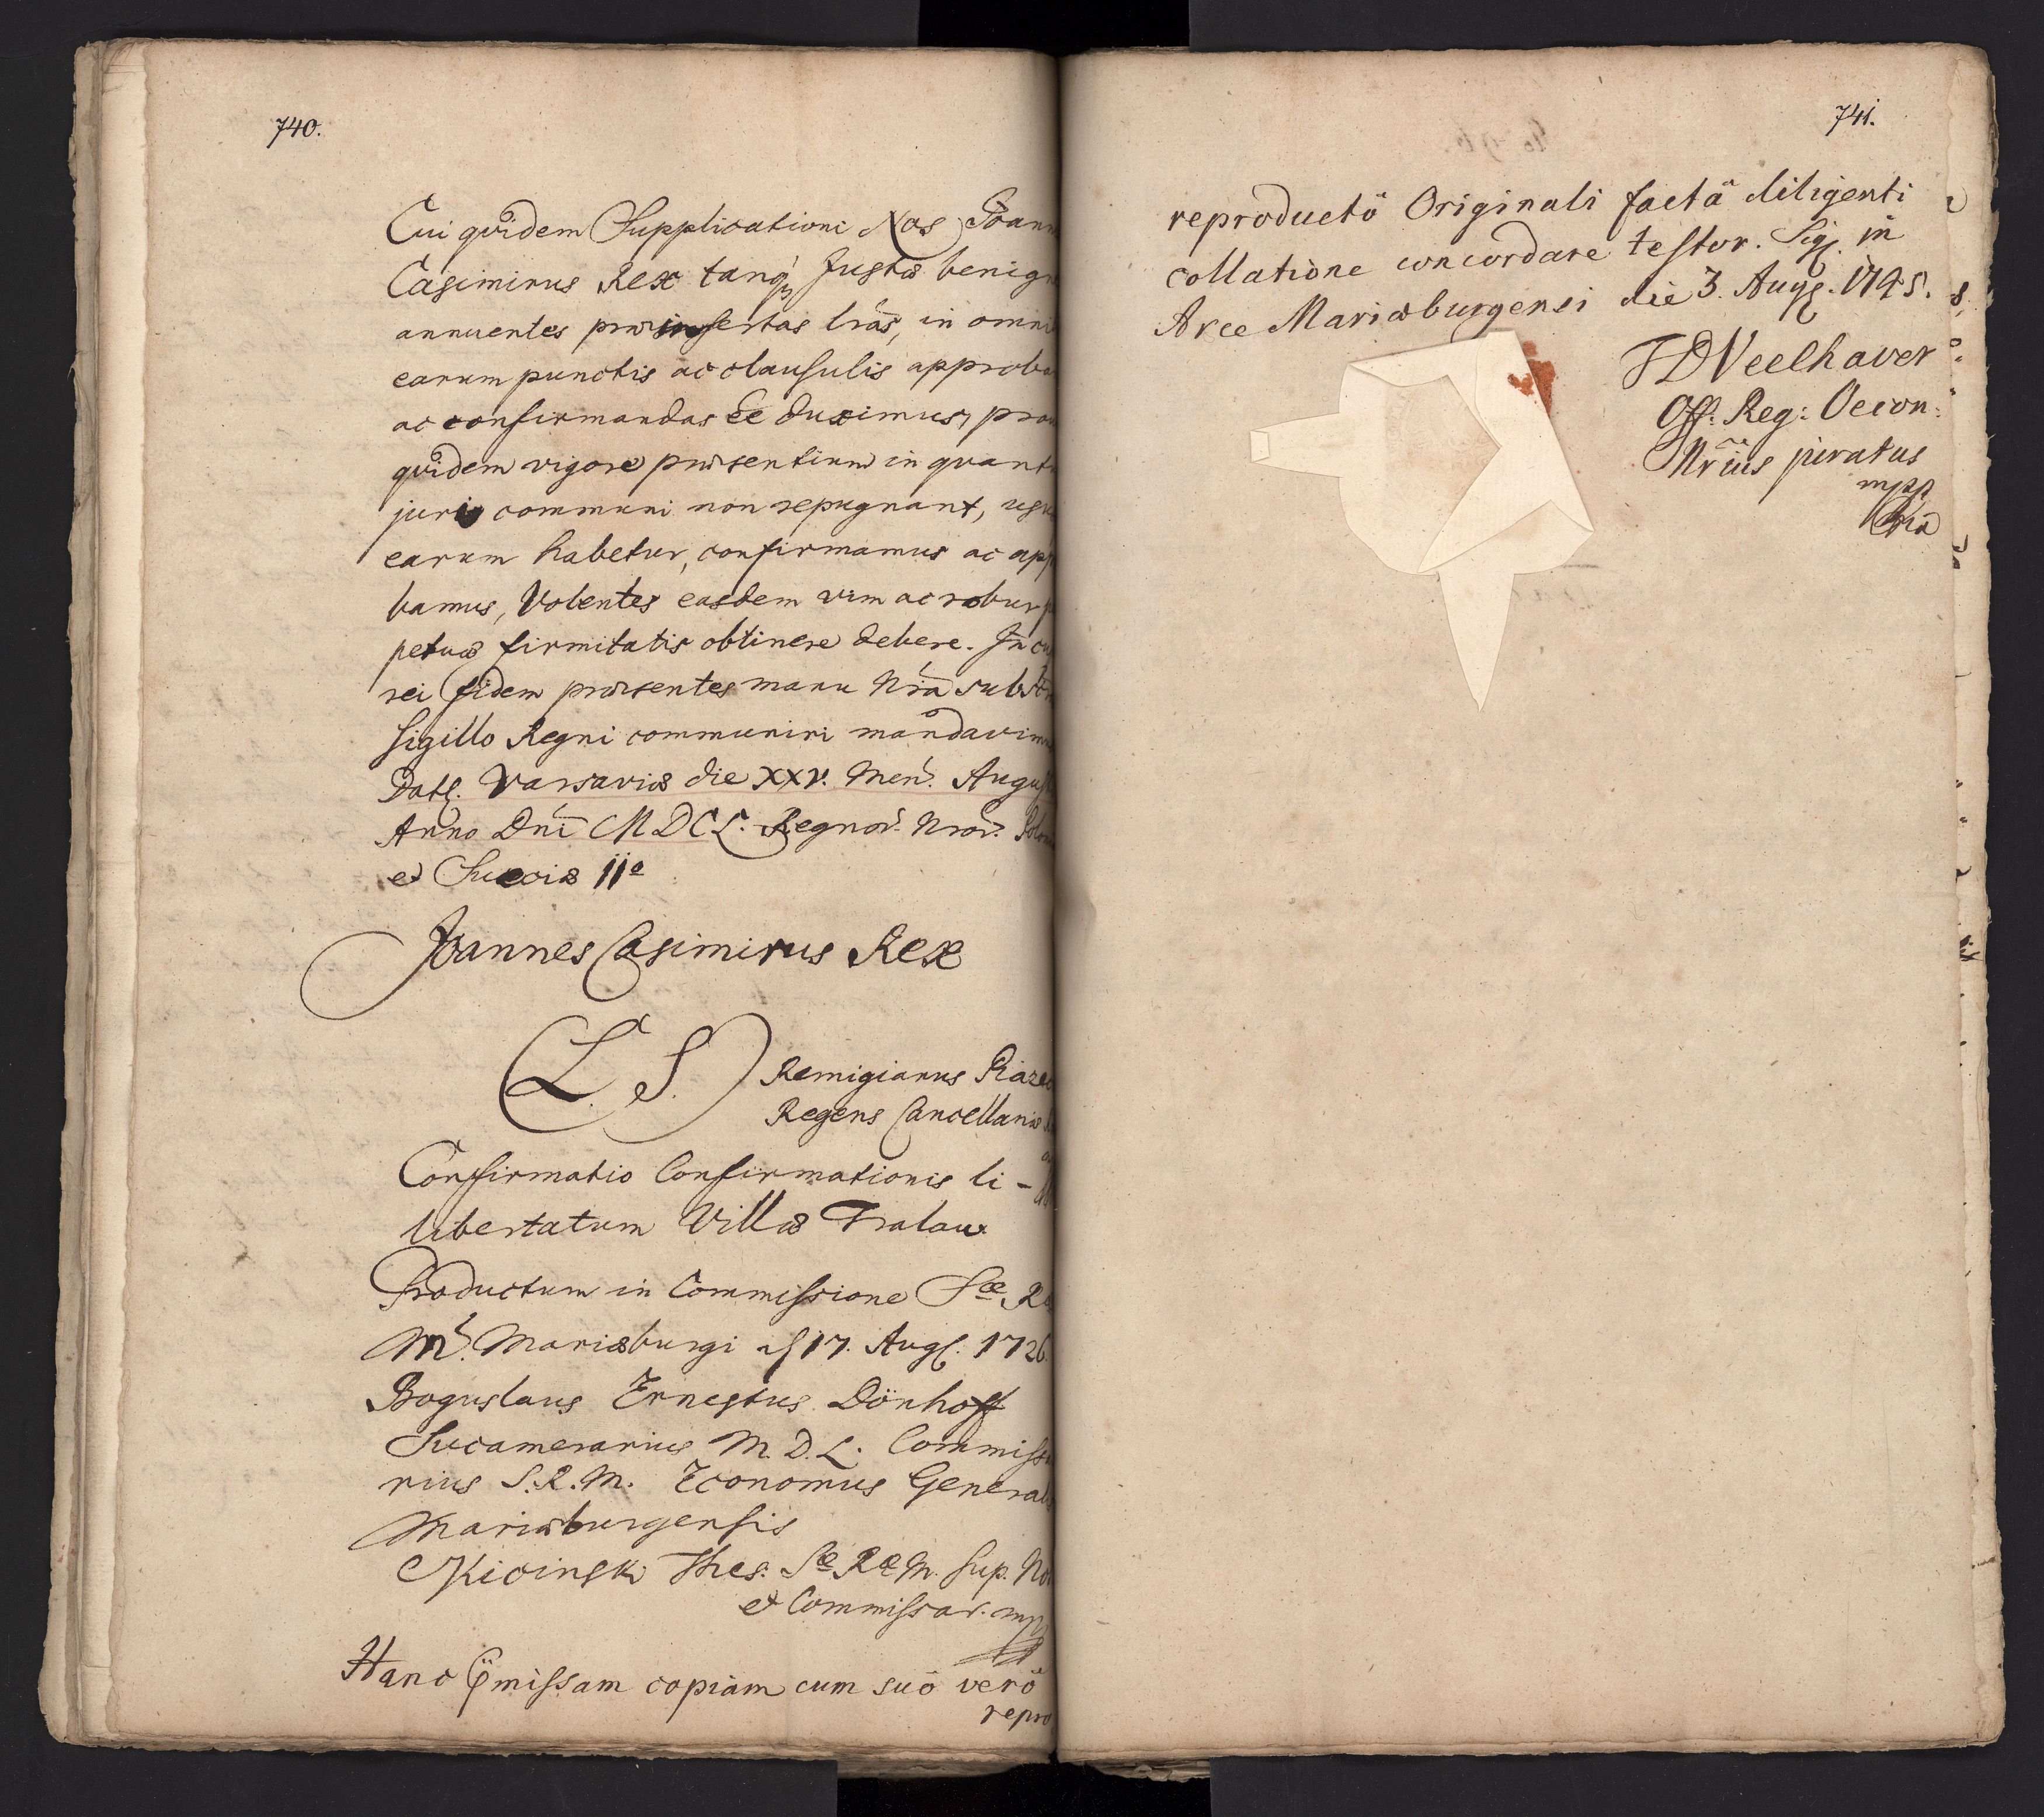 740.
Cui quidem Supplicationi Nos Joann
Casimirus Rex tanq̃ Justæ benign
annuentes præinsertas lrãs, in omni
earum punctis ac clausulis approba
ac confirmandas ee duximus, prou
quidem vigore præsentium in quant
juri communi non repugnant, usu
earum habetur, confirmamus ac app
bamus, Volentes easdem vim ac robur p
petuæ firmitatis obtinere debere. In cu
rei fidem præsentes manu Nrã subst
sigillo Regni communiri mandavim
Datt. Varsaviæ die XXV. Men. Augus
Anno Dnĩ MDCL. Regnor. Nror. Polon
et Sueciæ IIo
Joannes Casimirus Rex
(L. S.) Remigianus Piazec
Regens Cancellariæ
Confirmatio Confirmationis li-
libertatum Villæ Tralau.
Productum in Commissione Sæ R
M. Mariæburgi d 17. Aug. 1726.
Boguslaus Ernestus Dönhoff
Succamerarius M. D. L. Commissa
rius S. R. M. Economus General
Mariæburgensis
Kicinski Thes. Sæ Ræ M. Sup. No
et Commissar. mp
Hanc p̈missam copiam cum suö verö
repro
741.
reproductö Originali factä diligenti
collatione concordare testor. Sig. in
Arce Mariæburgensi die 3. Aug. 1745.
F D Veelhaver
Off: Reg: Oecon:
Nrius juratus
mpp